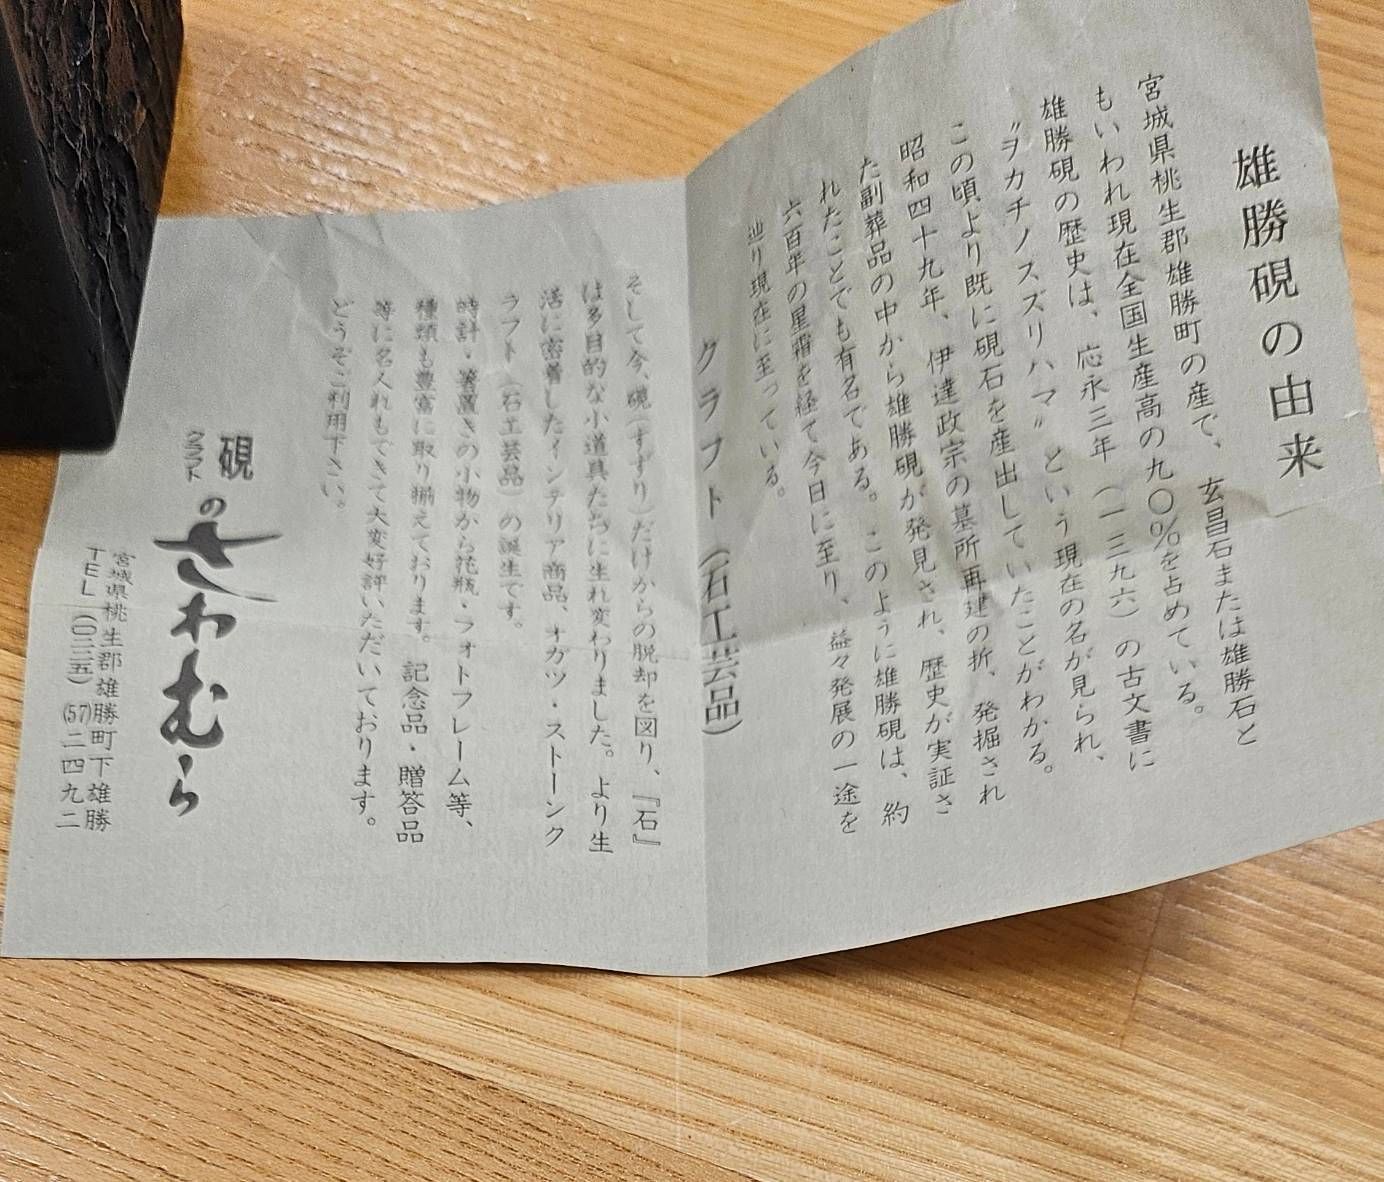 雄勝硯の由来
宮城県桃生郡雄勝町の産で、玄昌石または雄勝石と
もいわれ現在全国生産高の九〇%を占めている。
雄勝硯の歴史は、応永三年（一三九六）の古文書に
〝ヲカチノスズリハマ〟という現在の名が見られ、
この頃より既に硯石を産出していたことがわかる。
昭和四十九年、伊達政宗の墓所再建の折、発掘され
た副葬品の中から雄勝硯が発見され、歴史が実証さ
れたことでも有名である。このように雄勝硯は、約
六百年の星霜を経て今日に至り、益々発展の一途を
辿り現在に至っている。
クラフト（石工芸品）
そして今、硯（すずり）だけからの脱却を図り、『石』
は多目的な小道具たちに生れ変わりました。より生
活に密着したインテリア商品、オガツ・ストーンク
ラフト（石工芸品）の誕生です。
時計・箸置きの小物から花瓶・フォトフレーム等、
種類も豊富に取り揃えております。記念品・贈答品
等に名入れもできて大変好評いただいております。
どうぞご利用下さい。
硯
クラフト
のさわむら
宮城県桃生郡雄勝町下雄勝
TEL（〇二二五）(57)二四九二